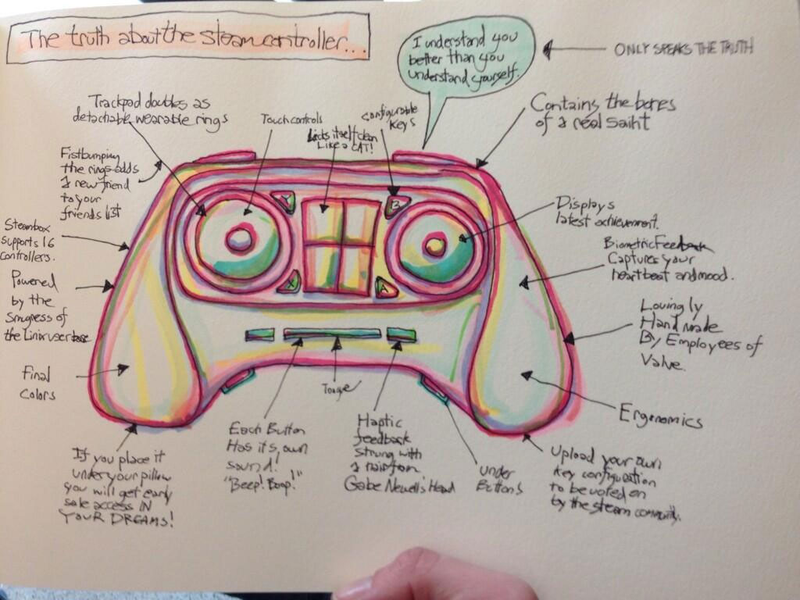 The truth about the steam controller...
I understand you
better than you
understand yourself.
ONLY SPEAKS THE TRUTH
Trackpad doubles as
detachable wearable rings
Touch controls
Licks itself clean
Like a CAT!
Configurable
Keys
Contains the bones
of a real saint
Fistbumping
the rings adds
a new friend
to your
friends list
Y
B
X
A
Displays
latest achievement.
Steambox
supports 16
controllers.
Biometric Feedback
Captures your
heartbeat and mood.
Powered
by the
Smugness of
the Linix userbase
Lovingly
Hand made
By Employees of
Valve.
Final
Colors
Tongue
Ergonomics
Each Button
Has its own
sound!
"Beep! Boop!"
Haptic
feedback
strung with
a hair from
Gabe Newell's Head
under
Buttons
If you place it
under your pillow
you will get early
sale access IN
YOUR DREAMS!
Upload your own
Key configuration
to be voted on
by the steam community.